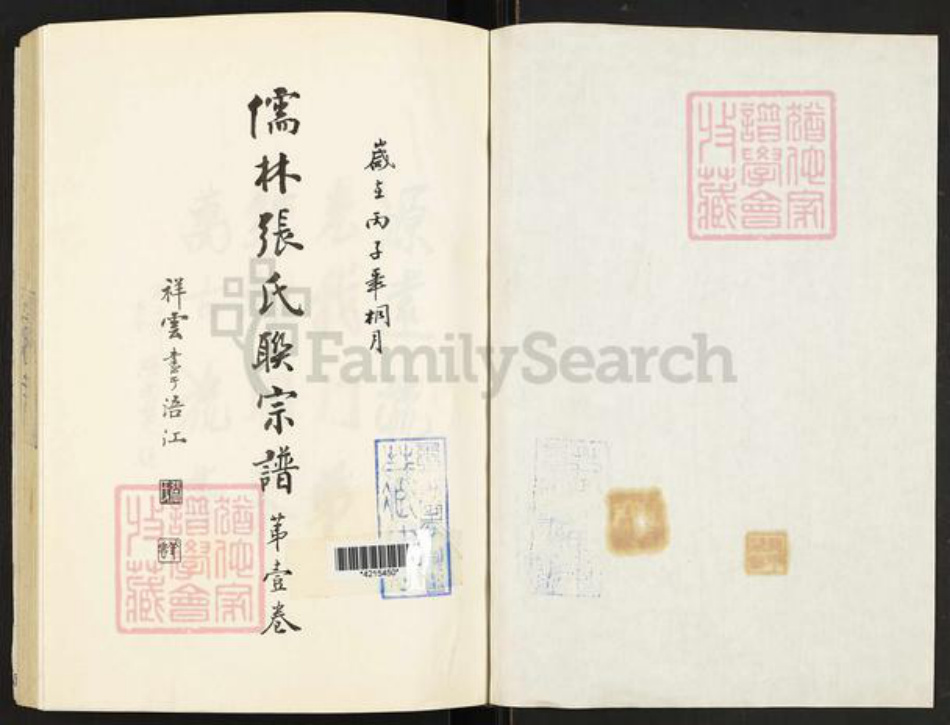 猶他家
譜學會
收藏
歲在丙子年桐月
儒林張氏聯宗譜 第壹卷
祥雲書于浯江
猶他家
譜學會
收藏
*4215450*
FamilySearch